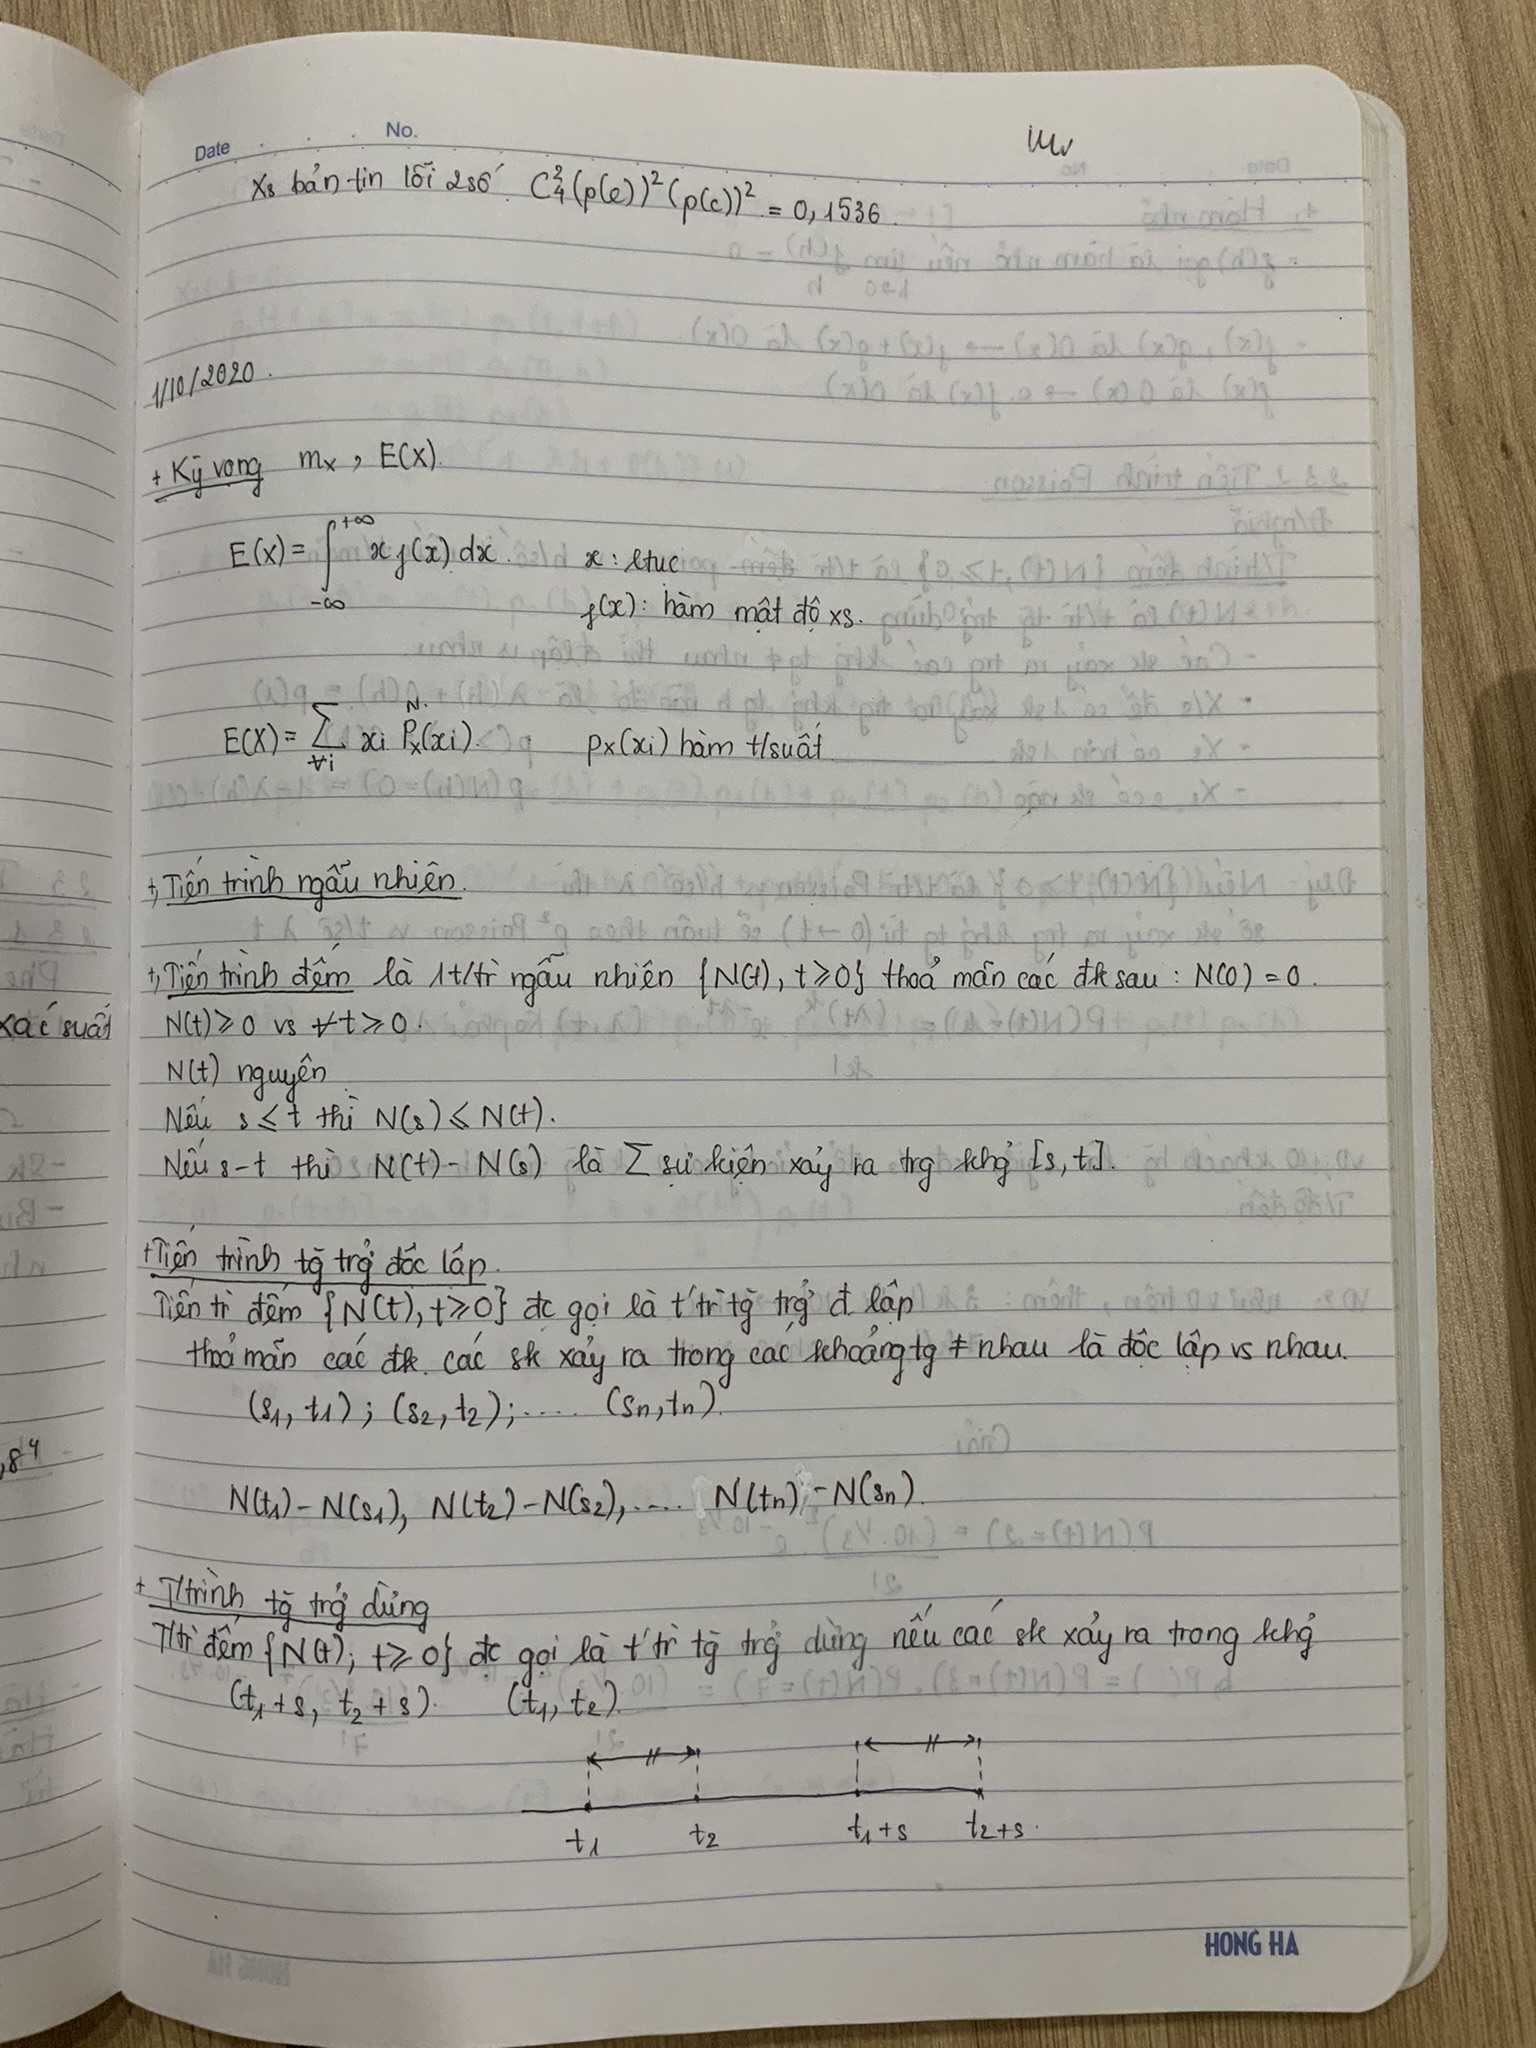 Date No.
Xs bản tin lỗi 2 số C₄²(p(e))²(p(c))² = 0,1536.
1/10/2020.
+ Kỳ vọng mₓ, E(X).
E(X) = ∫_{-∞}^{+∞} x f(x) dx. x: ltục
f(x): hàm mật độ xs.
E(X) = ∑_{∀i} xi Pₓ(xi). pₓ(xi) hàm t/suất.
+, Tiến trình ngẫu nhiên.
+, Tiến trình đếm là 1 t/trì ngẫu nhiên {N(t), t ≥ 0} thoả mãn các đk sau : N(0) = 0.
xác suất
N(t) ≥ 0 vs ∀t ≥ 0.
N(t) nguyên
Nếu s ≤ t thì N(s) ≤ N(t).
Nếu s-t thì N(t) - N(s) là ∑ sự kiện xảy ra trg khg [s, t].
+ Tiến trình tg trg đốc lập.
Tiến trì đếm {N(t), t ≥ 0} đc gọi là t'trì tg trg đ lập
thoả mãn các đk. các sk xảy ra trong các khoảng tg ≠ nhau là độc lập vs nhau.
(s₁, t₁) ; (s₂, t₂); .... (sn, tn).
,8⁴
N(t₁) - N(s₁), N(t₂) - N(s₂), .... N(tn) - N(sn).
+ T/trình tg trg dừng
T/trì đếm {N(t); t ≥ 0} đc gọi là t'trì tg trg dừng nếu các sk xảy ra trong khg
(t₁+s, t₂+s). (t₁, t₂).
t₁ t₂ t₁+s t₂+s.
HONG HA